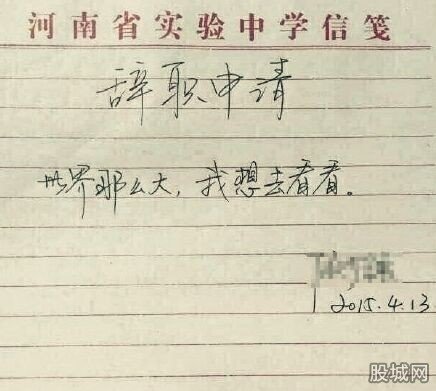 河南省实验中学信笺
辞职申请
世界那么大，我想去看看。
2015.4.13
股城网